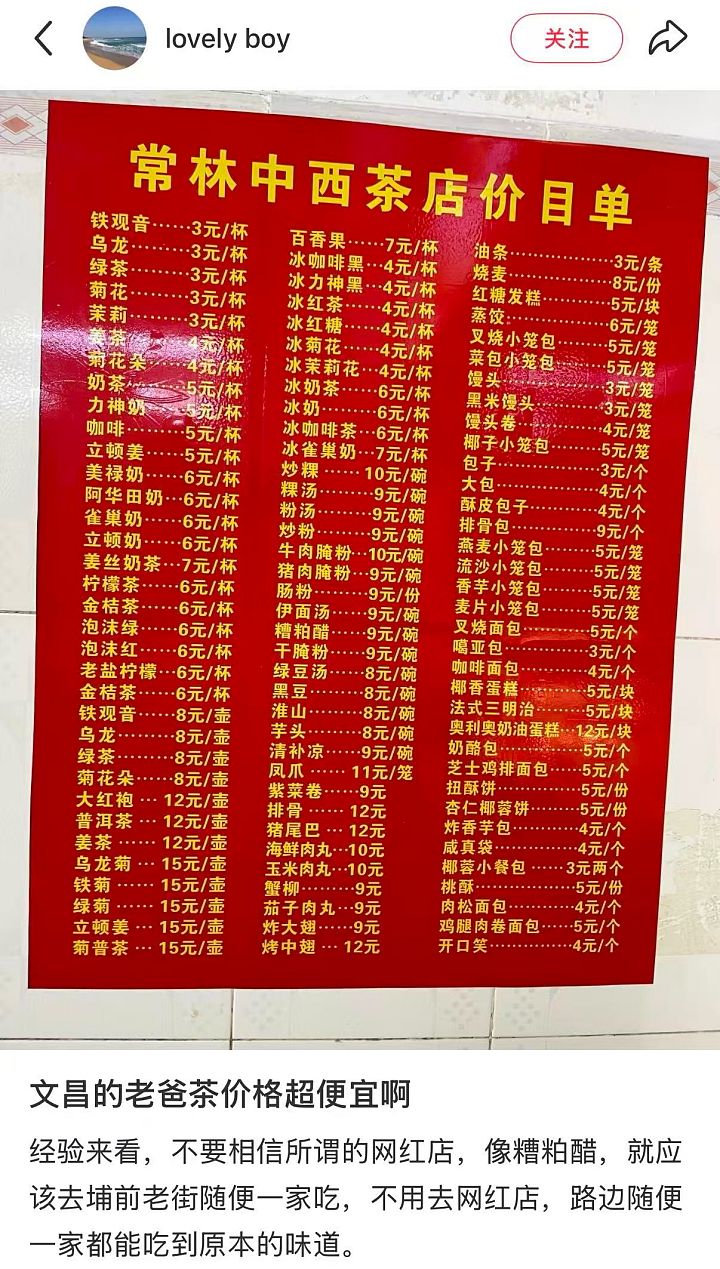 lovely boy
关注
常林中西茶店价目单
铁观音······3元/杯
乌龙········3元/杯
绿茶········3元/杯
菊花········3元/杯
茉莉········3元/杯
姜茶········4元/杯
菊花朵······4元/杯
奶茶········5元/杯
力神奶······5元/杯
咖啡········5元/杯
立顿姜······5元/杯
美禄奶······6元/杯
阿华田奶···6元/杯
雀巢奶······6元/杯
立顿奶······6元/杯
姜丝奶茶···7元/杯
柠檬茶······6元/杯
金桔茶······6元/杯
泡沫绿······6元/杯
泡沫红······6元/杯
老盐柠檬···6元/杯
金桔茶······6元/杯
铁观音······8元/壶
乌龙········8元/壶
绿茶········8元/壶
菊花朵······8元/壶
大红袍···12元/壶
普洱茶···12元/壶
姜茶······12元/壶
乌龙菊···15元/壶
铁菊······15元/壶
绿菊······15元/壶
立顿姜···15元/壶
菊普茶···15元/壶
百香果······7元/杯
冰咖啡黑···4元/杯
冰力神黑···4元/杯
冰红茶······4元/杯
冰红糖······4元/杯
冰菊花······4元/杯
冰茉莉花···4元/杯
冰奶茶······6元/杯
冰奶········6元/杯
冰咖啡茶···6元/杯
冰雀巢奶···7元/杯
炒粿······10元/碗
粿汤········9元/碗
粉汤········9元/碗
炒粉········9元/碗
牛肉腌粉···10元/碗
猪肉腌粉···9元/碗
肠粉········9元/份
伊面汤······9元/碗
糟粕醋······9元/碗
干腌粉······9元/碗
绿豆汤······8元/碗
黑豆········8元/碗
淮山········8元/碗
芋头········8元/碗
清补凉······9元/碗
凤爪······11元/笼
紫菜卷······9元
排骨······12元
猪尾巴···12元
海鲜肉丸···10元
玉米肉丸···10元
蟹柳········9元
茄子肉丸···9元
炸大翅······9元
烤中翅···12元
油条··················3元/条
烧麦··················8元/份
红糖发糕············5元/块
蒸饺··················6元/笼
叉烧小笼包·········5元/笼
菜包小笼包·········5元/笼
馒头··················3元/笼
黑米馒头············3元/笼
馒头卷···············4元/笼
椰子小笼包·········5元/笼
包子··················3元/个
大包··················4元/个
酥皮包子············4元/个
排骨包···············9元/个
燕麦小笼包·········5元/笼
流沙小笼包·········5元/笼
香芋小笼包·········5元/笼
麦片小笼包·········5元/笼
叉烧面包············5元/个
噶亚包···············3元/个
咖啡面包············4元/个
椰香蛋糕············5元/块
法式三明治·········5元/块
奥利奥奶油蛋糕···12元/块
奶酪包···············5元/个
芝士鸡排面包······5元/个
扭酥饼···············5元/份
杏仁椰蓉饼·········5元/份
炸香芋包············4元/个
咸真袋···············4元/个
椰蓉小餐包······3元两个
桃酥··················5元/份
肉松面包············4元/个
鸡腿肉卷面包······5元/个
开口笑···············4元/个
文昌的老爸茶价格超便宜啊
经验来看，不要相信所谓的网红店，像糟粕醋，就应
该去埔前老街随便一家吃，不用去网红店，路边随便
一家都能吃到原本的味道。